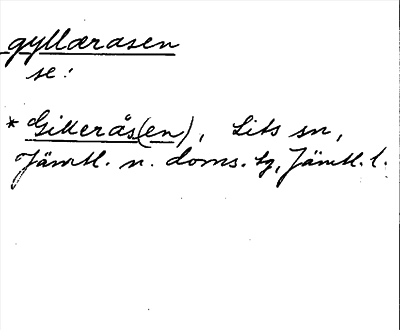 gyllærasen
se:
* Gillerås(en), Lits sn,
Jämtl. n. doms. tg, Jämtl. l.